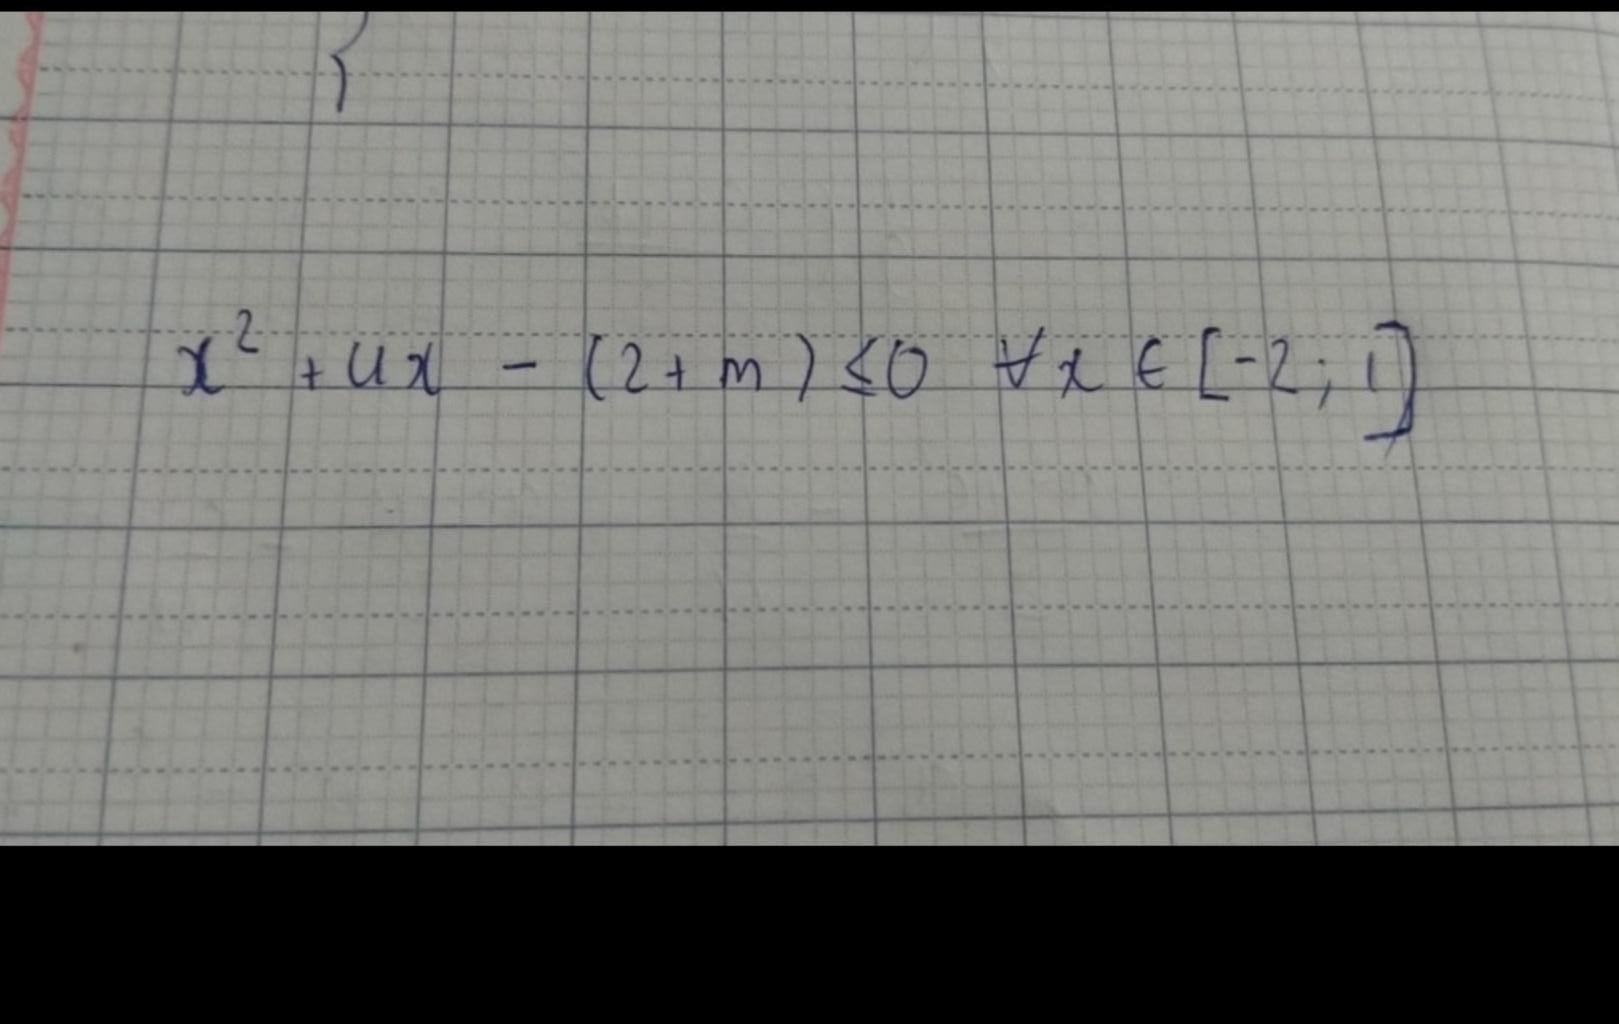 x² + 4x - (2 + m) ≤ 0 ∀x ∈ [-2; 1]